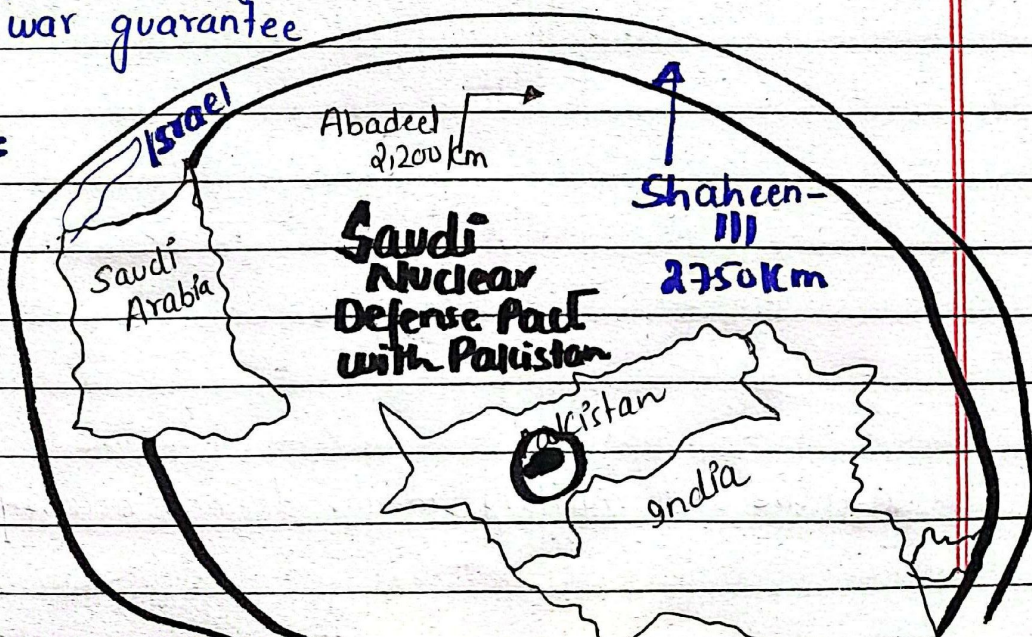 war guarantee
Israel
Abadeel
2,200km
Shaheen-
III
2750Km
Saudi
Arabia
Saudi
Nuclear
Defense Pact
with Pakistan
Pakistan
India